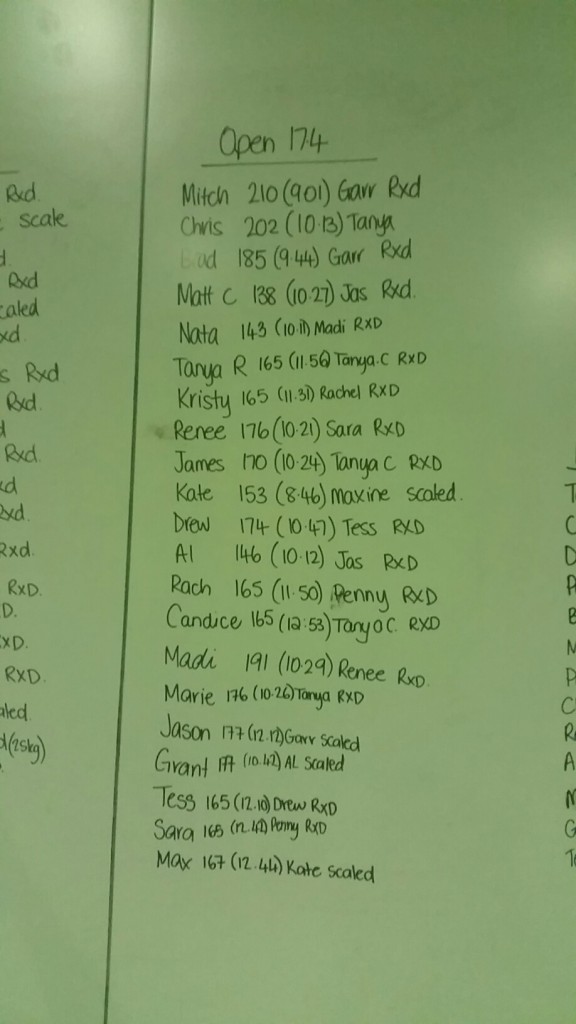 Open 174
Mitch 210 (901) Garr Rxd
Chris 202 (10.13) Tanya
185 (9.44) Garr Rxd
Matt C 138 (10.27) Jas Rxd.
Nata 143 (10.11) Madi RXD
Tanya R 165 (11.56) Tanya.C RXD
Kristy 165 (11.31) Rachel RXD
Renee 176 (10.21) Sara RXD
James 170 (10.24) Tanya C RXD
Kate 153 (8.46) Maxine scaled.
Drew 174 (10.47) Tess RXD
Al 146 (10.12) Jas RXD
Rach 165 (11.50) Penny RXD
Candice 165 (12:53) Tanya C. RXD
Madi 191 (10.29) Renee RXD.
Marie 176 (10.26) Tanya RXD
Jason 177 (12.17) Garr scaled
Grant 177 (10.42) AL scaled
Tess 165 (12.10) Drew RXD
Sara 165 (12.42) Penny RXD
Max 167 (12.44) Kate scaled
Rxd.
scale
Rxd
Rxd
Rxd.
Rxd.
Rxd.
RXD.
RXD.
(25kg)